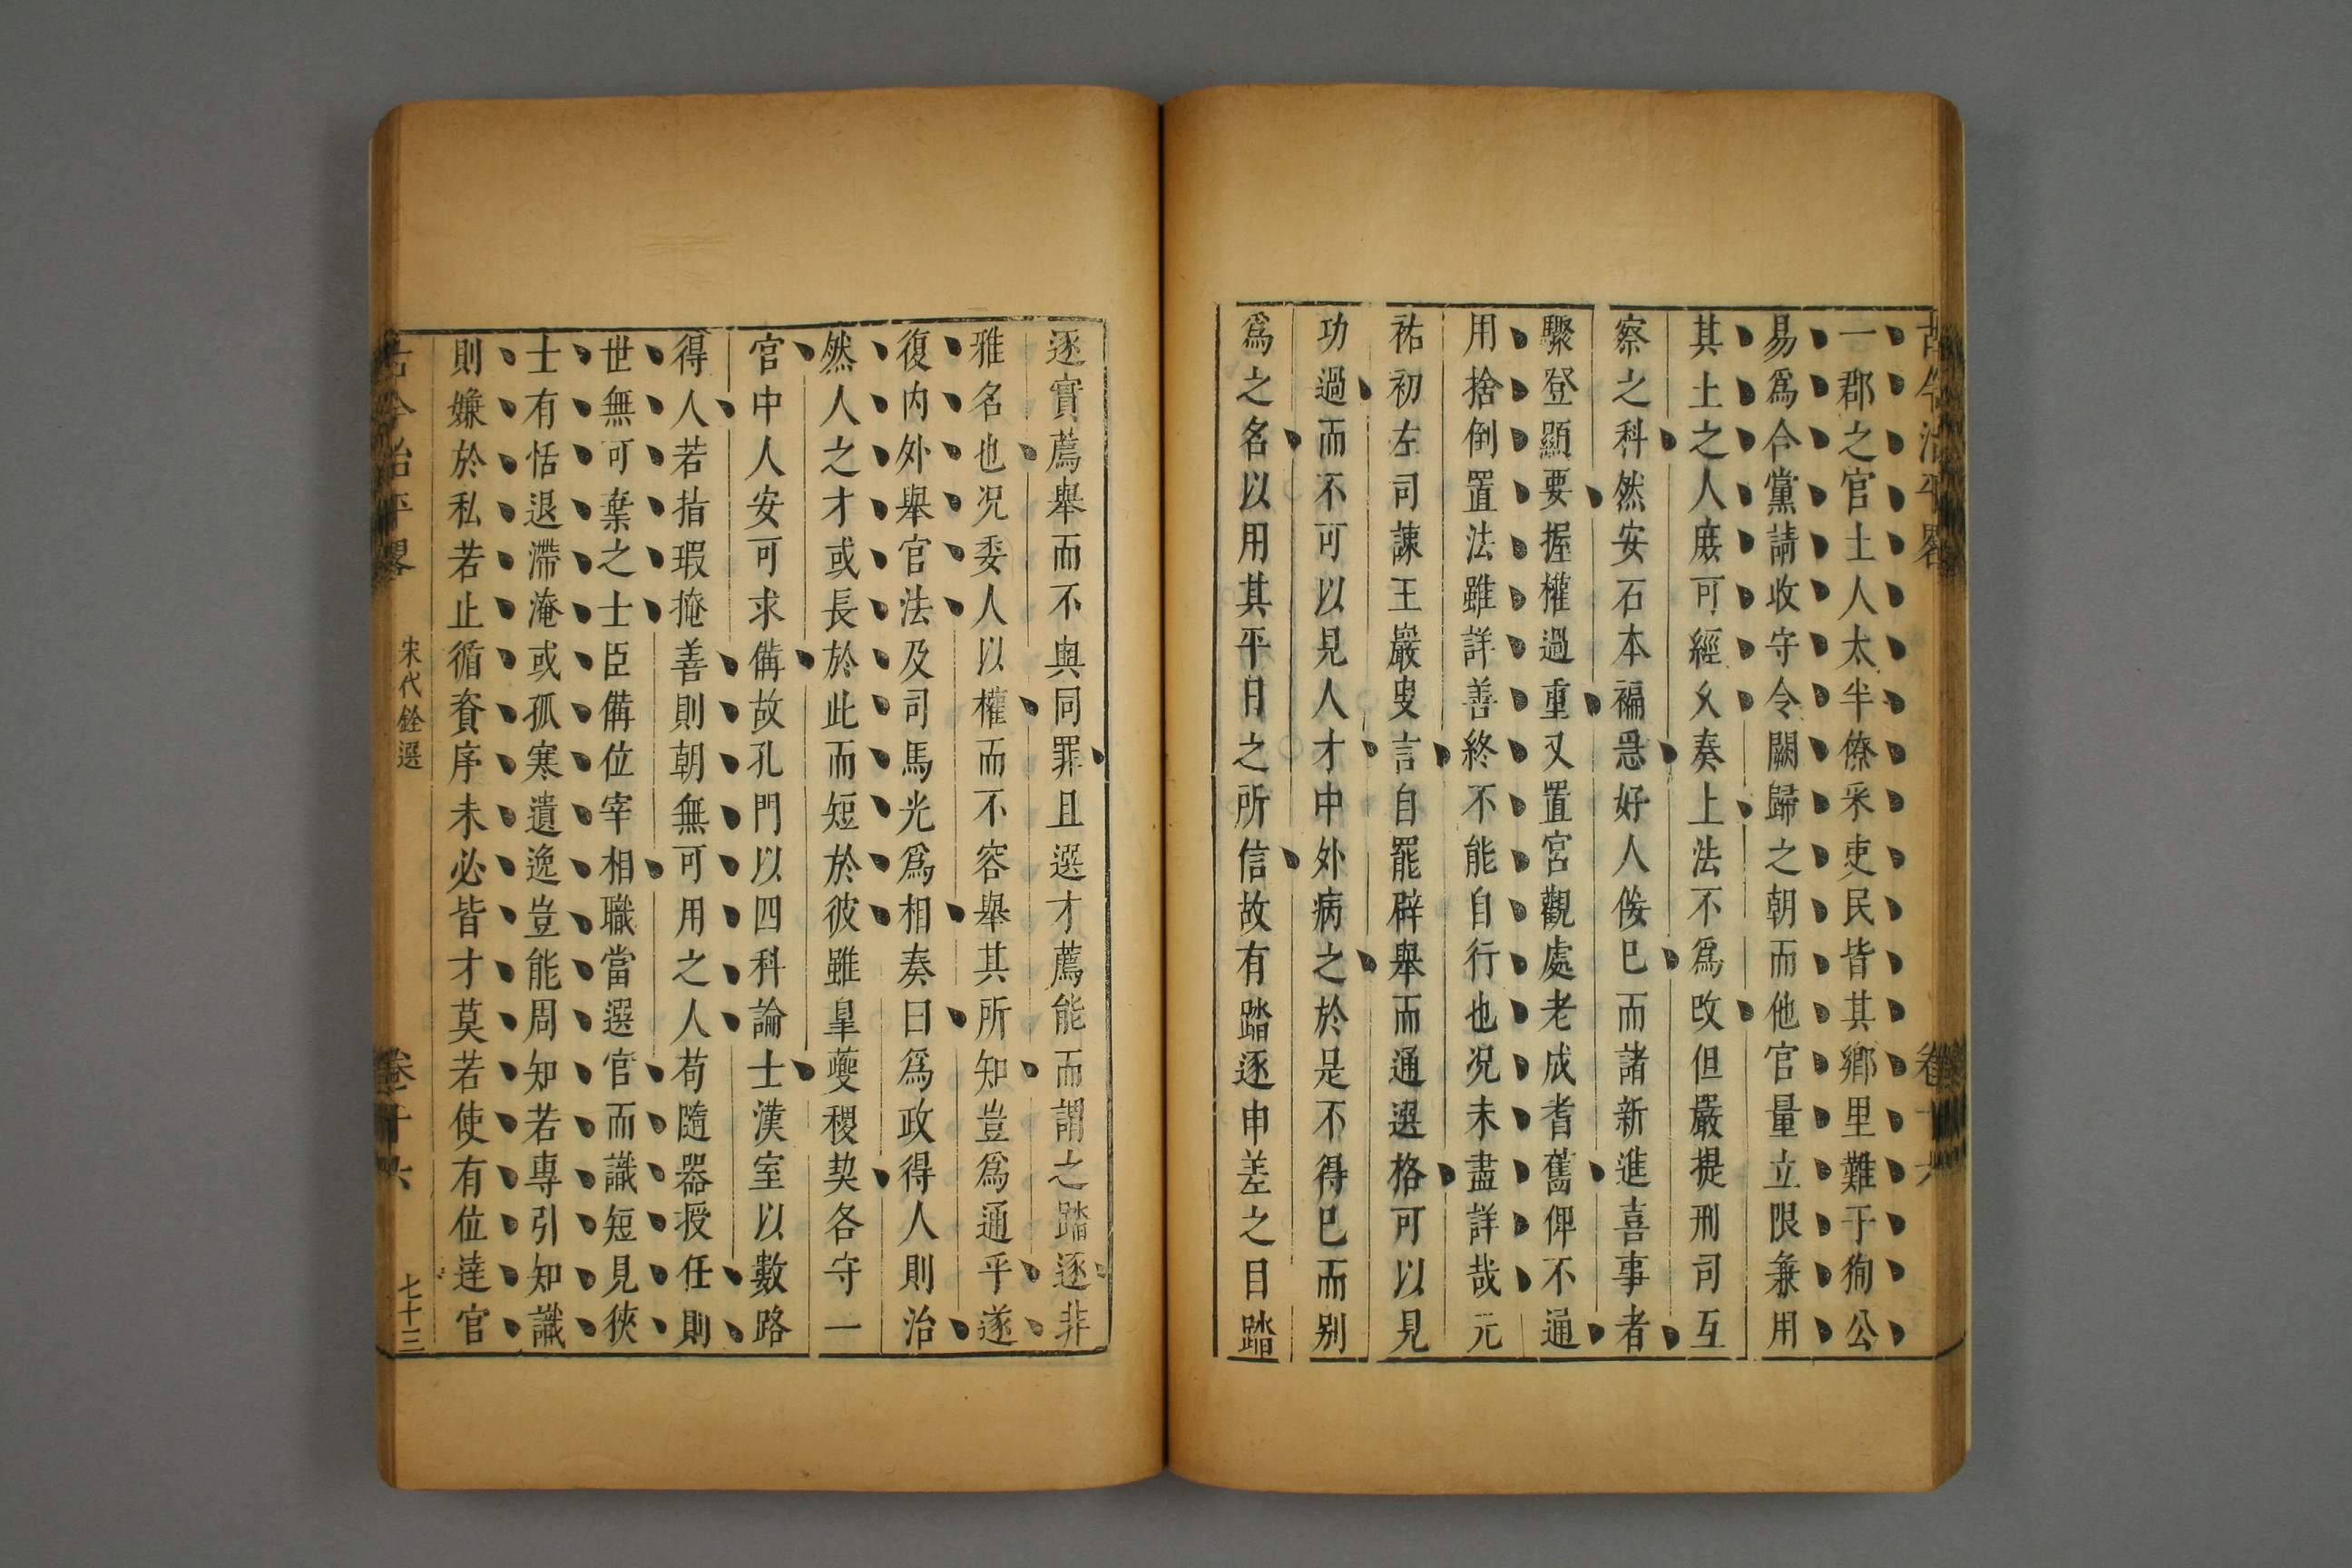 古今治平畧
卷十六
一郡之官士人太半僚采吏民皆其鄉里難于狥公
易爲合黨請收守令闕歸之朝而他官量立限兼用
其土之人庶可經乆奏上法不爲改但嚴提刑司互
察之科然安石本褊㤂好人佞巳而諸新進喜事者
驟登顯要握權過重又置宮觀處老成耆舊俾不通
用捨倒置法雖詳善終不能自行也况未盡詳哉元
祐初左司諫王巖叟言自罷辟舉而通選格可以見
功過而不可以見人才中外病之於是不得巳而别
爲之名以用其平日之所信故有踏逐申差之目踏
逐實薦舉而不與同罪且選才薦能而謂之踏逐非
雅名也况委人以權而不容舉其所知豈爲通乎遂
復内外舉官法及司馬光爲相奏曰爲政得人則治
然人之才或長於此而短於彼雖皐夔稷契各守一
官中人安可求備故孔門以四科論士漢室以數路
得人若指瑕掩善則朝無可用之人苟隨器授任則
世無可棄之士臣備位宰相職當選官而識短見狹
士有恬退滯淹或孤寒遺逸豈能周知若專引知識
則嫌於私若止循資序未必皆才莫若使有位達官
古今治平畧
宋代銓選
卷十六
七十三